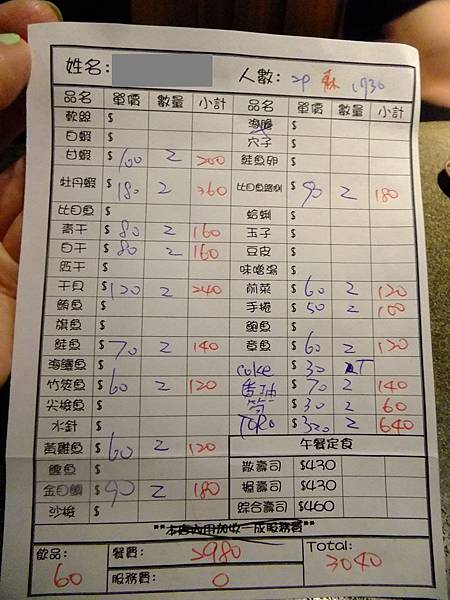 姓名: 人數: 2p 蘇 1730
品名 單價 數量 小計 品名 單價 數量 小計
軟絲 $ 海膽 $
白蝦 $ 穴子 $
甘蝦 $ 100 2 200 鮭魚卵 $
牡丹蝦 $ 180 2 360 比目魚鰭側 $ 90 2 180
比目魚 $ 蛤蜊 $
青干 $ 80 2 160 玉子 $
白干 $ 80 2 160 豆皮 $
紅干 $ 味噌湯 $
干貝 $ 120 2 240 前菜 $ 60 2 120
鮪魚 $ 手捲 $ 50 2 100
旗魚 $ 鮑魚 $
鮭魚 $ 70 2 140 章魚 $ 60 2 120
海鱺魚 $ coke $ 30 2T
竹筴魚 $ 60 2 120 魚油 $ 70 2 140
尖梭魚 $ $ 30 2 60
水針 $ TORO $ 320 2 640
黃雞魚 $ 60 2 120 午餐定食
鰹魚 $ 散壽司 $430
金目鯛 $ 90 2 180 握壽司 $430
沙梭 $ 綜合壽司 $460
**本店內用加收一成服務費**
飲品: 60 餐費: 2980 Total: 3040
服務費: 0